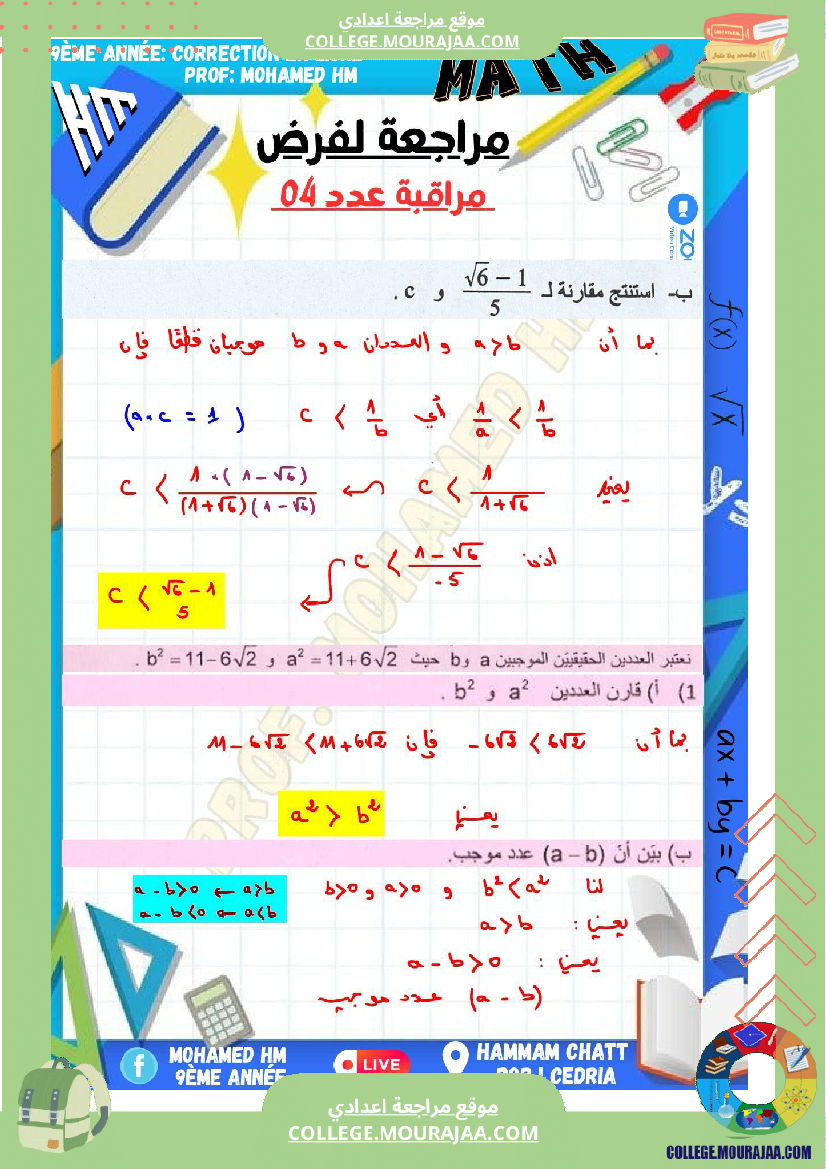 موقع مراجعة اعدادي
COLLEGE.MOURAJAA.COM
9ÈME ANNÉE: CORRECTION
PROF: MOHAMED HM
MATH
HM
مراجعة لفرض
مراقبة عدد 04
ب- استنتج مقارنة لـ (√6 − 1)/5 و c .
بما أن a > b و العددان a و b موجبان قطعًا فإن
1/a < 1/b أي c < 1/b (a × c = 1)
يعني c < 1/(1+√6) c < 1 × (1 − √6)/((1+√6)(1 − √6))
اذن c < (1 − √6)/-5
c < (√6 − 1)/5
نعتبر العددين الحقيقيّين الموجبين a و b حيث a² = 11+6√2 و b² = 11−6√2 .
1) أ) قارن العددين a² و b² .
بما أن -6√2 < 6√2 فإن 11 − 6√2 < 11+6√2
يعني a² > b²
ب) بيّن أنّ (a − b) عدد موجب.
لنا b² < a² و a>0 و b>0
a - b>0 ← a>b
a - b<0 ← a<b
يعني : a > b
يعني : a - b > 0
(a - b) عدد موجب
f(x)
√x
ax + by = c
PROF. MOHAMED HM
MOHAMED HM
9ÈME ANNÉE
LIVE
HAMMAM CHATT
موقع مراجعة اعدادي
COLLEGE.MOURAJAA.COM
COLLEGE.MOURAJAA.COM